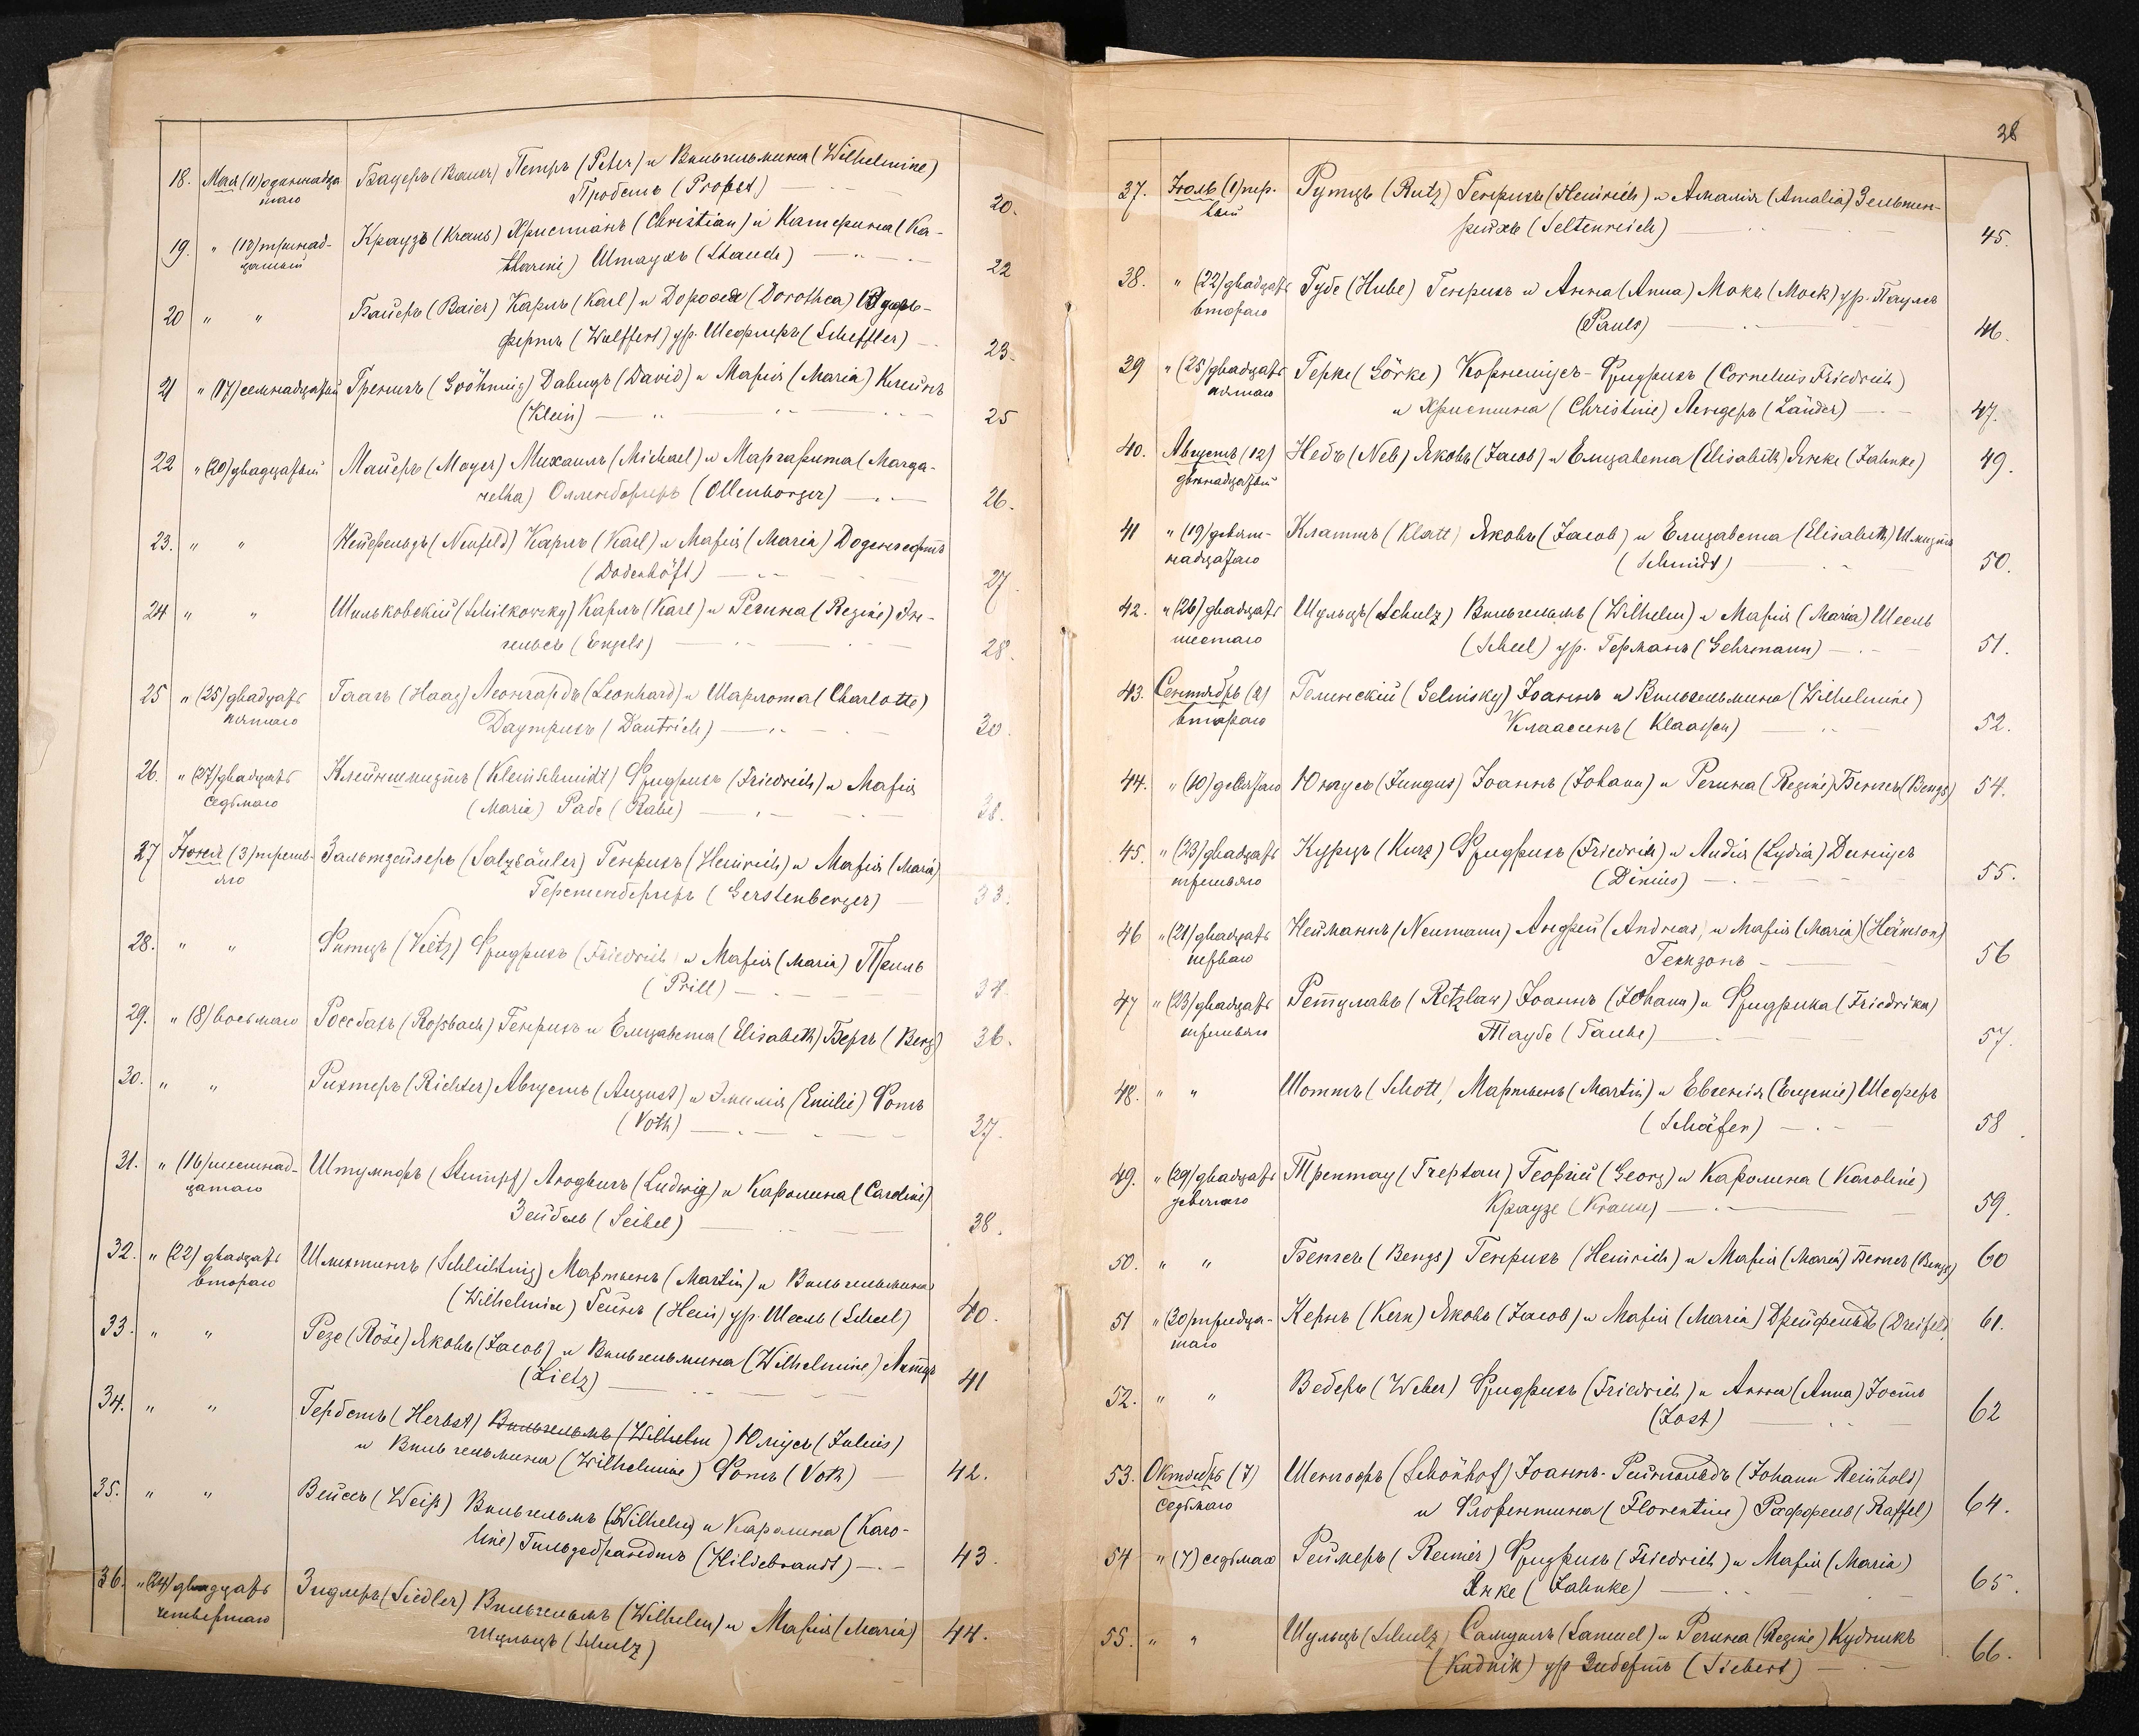 18. Мая (11) одиннадца Бауеръ (Bauer) Петръ (Peter) и Вильгельмина (Wilhelmine)
таго Пробстъ (Probst) 20.
19. " (13) тринад- Краузъ (Kraus) Христіанъ (Christian) и Катерина (Ka-
цатый tharine) Штаухъ (Stauch) 22
20 " " Баіеръ (Baier) Карлъ (Karl) и Доротея (Dorothea)
фертъ (Wulffert) ур. Шефлеръ (Scheffler) 23.
21 " (17) семнадцатый Гренигъ (Gröhnig) Давидъ (David) и Марія (Maria) Клейнъ
(Klein) 25
22 " (20) двадцатый Маіеръ (Mayer) Михаилъ (Michael) и Маргарита (Marga-
retha) Олленбергеръ (Ollenborger) 26.
23. " " Нейфельдъ (Neufeld) Карлъ (Karl) и Марія (Maria) Доденгефтъ
(Dodenhöft) 27.
24 " " Шильковскій (Schilkowsky) Карлъ (Karl) и Регина (Regine) Эн-
гельсъ (Engels) 28.
25 " (25) двадцать Гаагъ (Haag) Леонгардъ (Leonhard) и Шарлота (Charlotte)
пятаго Даутрихъ (Dautrich) 30.
26. " (27) двадцать Клейншмидтъ (Kleinschmidt) Фридрихъ (Friedrich) и Марія
седьмаго (Maria) Рабе (Rabe) 31.
27 Іюня (3) треть- Зальтцейлеръ (Salzsäuler) Генрихъ (Heinrich) и Марія (Maria)
яго Герстенбергеръ (Gerstenberger) 33.
28. " " Фитцъ (Vietz) Фридрихъ (Friedrich) и Марія (Maria) Приль
(Prill) 34.
29. " (8) восьмаго Россбахъ (Roßbach) Генрихъ и Елизавета (Elisabeth) Бергъ (Berg) 36.
30. " " Рихтеръ (Richter) Августъ (August) и Эмилія (Emilie) Фотъ
(Voth) 37.
31. " (16) шестнад- Штумпфъ (Stumpf) Людвигъ (Ludwig) и Каролина (Caroline)
цатаго Зейбель (Seibel) 38.
32. " (22) двадцать Шлихтингъ (Schlichtnig) Мартынъ (Martin) и Вильгельмина
втораго (Wilhelmine) Гейнъ (Hein) ур. Шеель (Scheel) 40.
33. " " Резе (Röse) Яковъ (Jacob) и Вильгельмина (Wilhelmine) Литцъ
(Lietz) 41
34. " " Гербстъ (Herbst) Вильгельмъ (Wilhelm) Юліусъ (Julius)
и Вильгельмина (Wilhelmine) Фотъ (Voth) 42.
35. " " Вейсъ (Weiß) Вильгельмъ (Wilhelm) и Каролина (Karo-
line) Гильдебрандтъ (Hildebrandt) 43.
36. " (24) двадцать Зидлеръ (Siedler) Вильгельмъ (Wilhelm) и Марія (Maria)
четвертаго Шульцъ (Schulz) 44.
38
37. Іюль (1) пер- Рутцъ (Rutz) Генрихъ (Heinrich) и Амалія (Amalia) Зельтен-
вый рейхъ (Seltenreich) 45.
38. " (22) двадцать Губе (Hube) Генрихъ и Анна (Anna) Мокъ (Mock) ур. Паулсъ
втораго (Pauls) 46.
39 " (25) двадцать Герке (Görke) Корнеліусъ-Фридрихъ (Cornelius Friedrich)
пятаго и Христина (Christine) Лендеръ (Länder) 47.
40. Августъ (12) Небъ (Neb) Яковъ (Jacob) и Елизавета (Elisabeth) Янке (Jahnke) 49.
двѣнадцатый
41 " (19) девят- Клаттъ (Klatt) Яковъ (Jacob) и Елизавета (Elisabeth) Шмидтъ
надцатаго (Schmidt) 50.
42. " (26) двадцать Шульцъ (Schulz) Вильгельмъ (Wilhelm) и Марія (Maria) Шеель
шестаго (Scheel) ур. Германъ (Gehrmann) 51.
43. Сентябрь (2) Гелинскій (Gelinsky) Іоаннъ и Вильгельмина (Wilhelmine)
втораго Клаассенъ (Klaassen) 52.
44. " (10) Юнгусъ (Jungus) Іоаннъ (Johann) и Регина (Regine) Бенгсъ (Bengs) 54.
45. " (23) двадцать Курцъ (Kurz) Фридрихъ (Friedrich) и Лидія (Lydia) Диніусъ
третьяго (Dinius) 55.
46 " (21) двадцать Нейманнъ (Neumann) Андрей (Andreas) и Марія (Maria) (Hämson)
перваго Гемзонъ 56
47 " (23) двадцать Ретцлавъ (Retzlaw) Іоаннъ (Johann) и Фридрика (Friedrika)
третьяго Таубе (Taube) 57.
48. " " Шоттъ (Schott) Мартынъ (Martin) и Евгенія (Eugenie) Шеферъ
(Schäfer) 58.
49. " (29) двадцать Трептау (Treptau) Георгій (Georg) и Каролина (Karoline)
девятаго Краузе (Krause) 59.
50. " " Бенгсъ (Bengs) Генрихъ (Heinrich) и Марія (Maria) Бенгсъ (Bengs) 60
51 " (30) тридца- Кернъ (Kern) Яковъ (Jacob) и Марія (Maria) Дрейфельдъ (Dreifeld) 61.
таго
52. " " Веберъ (Weber) Фридрихъ (Friedrich) и Анна (Anna) Іостъ
(Jost) 62
53. Октябрь (7) Шенгофъ (Schönhof) Іоаннъ-Рейнгольдъ (Johann Reinhold)
седьмаго и Флорентина (Florentine) Раффель (Raffel) 64.
54 " (7) седьмаго Реймеръ (Reimer) Фридрихъ (Friedrich) и Марія (Maria)
Янке (Jahnke) 65.
55. " " Шульцъ (Schulz) Самуилъ (Samuel) и Регина (Regine) Кудникъ
(Kudnik) ур Зибертъ (Siebert) 66.